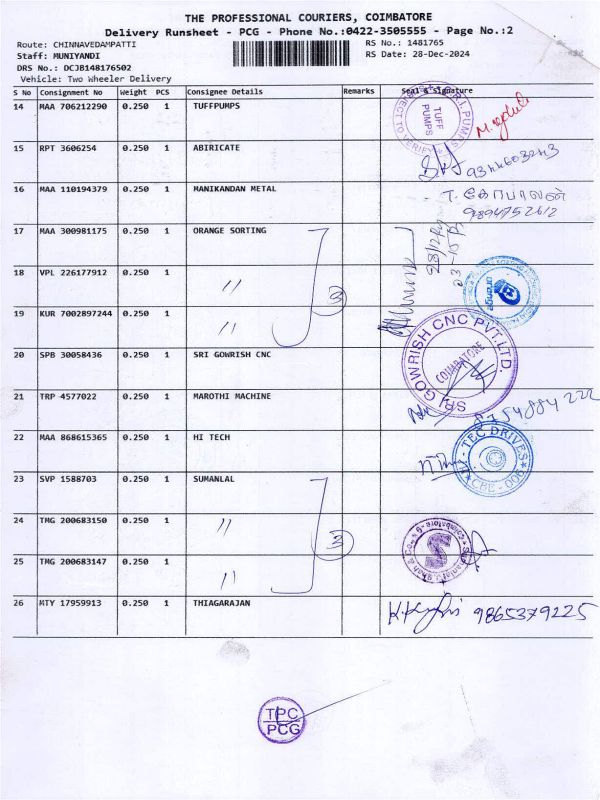 THE PROFESSIONAL COURIERS, COIMBATORE
Delivery Runsheet - PCG - Phone No.:0422-3505555 - Page No.:2
Route: CHINNAVEDAMPATTI RS No.: 1481765
Staff: MUNIYANDI RS Date: 28-Dec-2024
DRS No.: DCJB148176502
Vehicle: Two Wheeler Delivery
S No Consignment No Weight PCS Consignee Details Remarks Seal & Signature
14 MAA 706212290 0.250 1 TUFFPUMPS
TUFF
PUMPS
15 RPT 3606254 0.250 1 ABIRICATE
16 MAA 110194379 0.250 1 MANIKANDAN METAL
T. கோபாலன்
9894752612
17 MAA 300981175 0.250 1 ORANGE SORTING
28/12/24
18 VPL 226177912 0.250 1 〃
3
orange
19 KUR 7002897244 0.250 1 〃
20 SPB 30058436 0.250 1 SRI GOWRISH CNC
SRI GOWRISH CNC PVT.LTD.
COIMBATORE
21 TRP 4577022 0.250 1 MAROTHI MACHINE
8754884222
22 MAA 868615365 0.250 1 HI TECH
HI-TEC DRIVES
CBE - 006
23 SVP 1588703 0.250 1 SUMANLAL
24 TMG 200683150 0.250 1 〃
3
S
25 TMG 200683147 0.250 1 〃
26 MTY 17959913 0.250 1 THIAGARAJAN
9865379225
TPC
PCG